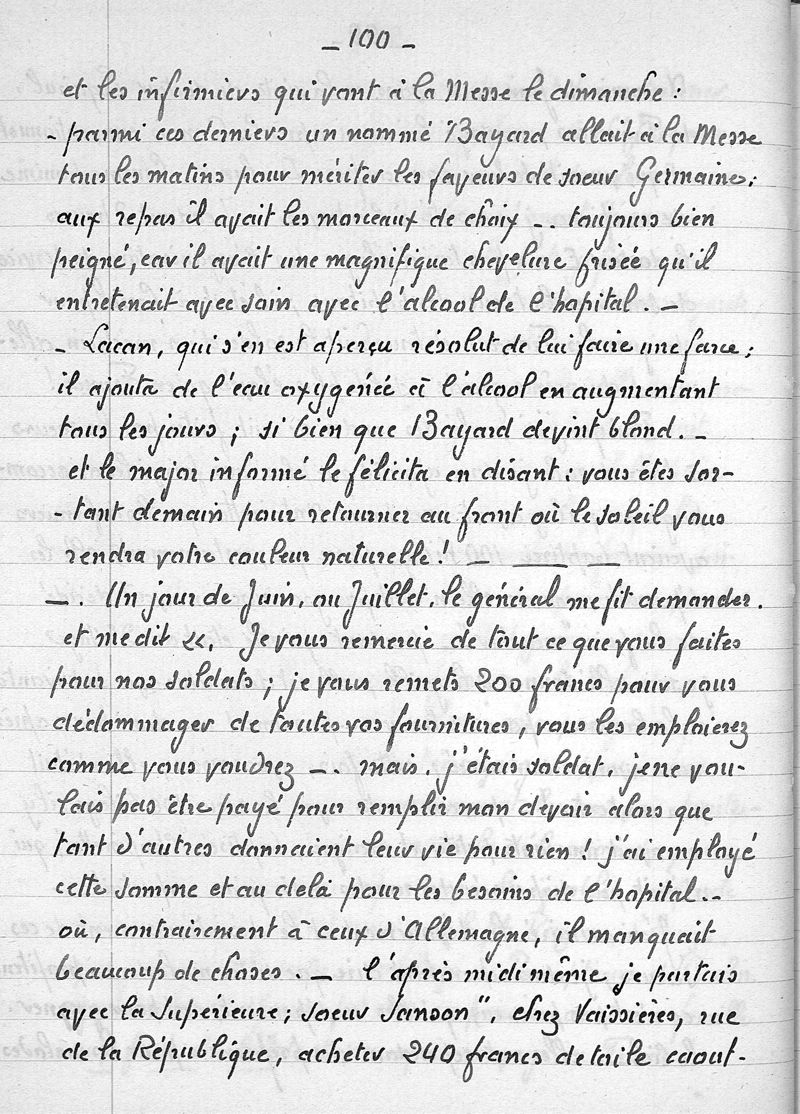 _ 100 _
et les infirmiers qui vont à la Messe le dimanche :
- parmi ces derniers un nommé Bayard allait à la Messe
tous les matins pour mériter les faveurs de soeur Germaine;
aux repas il avait les morceaux de choix -.. toujours bien
peigné, car il avait une magnifique chevelure frisée qu'il
entretenait avec soin avec l'alcool de l'hopital. _
- Lacan, qui s'en est aperçu résolut de lui faire une farce;
il ajouta de l'eau oxygénée à l'alcool en augmentant
tous les jours ; si bien que Bayard devint blond. _
et le major informé le félicita en disant : vous êtes sor-
- tant demain pour retourner au front où le soleil vous
rendra votre couleur naturelle ! _ ___ _
_. Un jour de Juin, ou Juillet, le général me fit demander.
et me dit «. Je vous remercie de tout ce que vous faites
pour nos soldats ; je vous remets 200 francs pour vous
dédommager de toutes vos fournitures, vous les emploierez
comme vous voudrez _. mais, j'étais soldat, je ne vou-
lais pas être payé pour remplir mon devoir alors que
tant d'autres donnaient leur vie pour rien ! j'ai employé
cette somme et au delà pour les besoins de l'hopital.-
où, contrairement à ceux d'Allemagne, il manquait
beaucoup de choses. _ l'après midi même je partais
avec la Supérieure ; soeur Sanson", chez Vaissières, rue
de la République, acheter 240 francs de toile caout-